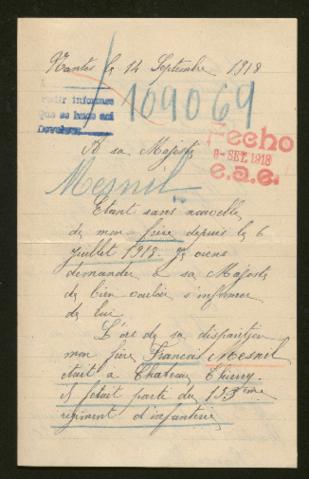 Nantes le 14 Septembre 1918
Pedir informes
que se hado así
109069
Hecho
9-SET.1918
e.a.e.
A sa Majesté
Mesnil
Etant sans nouvelle
de mon frère depuis le 6
juillet 1918. Je viens
demander à sa Majesté
de bien vouloir s'informer
de lui.
Lors de sa disparition
mon frère Francois Mesnil
était à Chateau Thierry.
Il fesait partie du 133ème
regiment d'infanterie